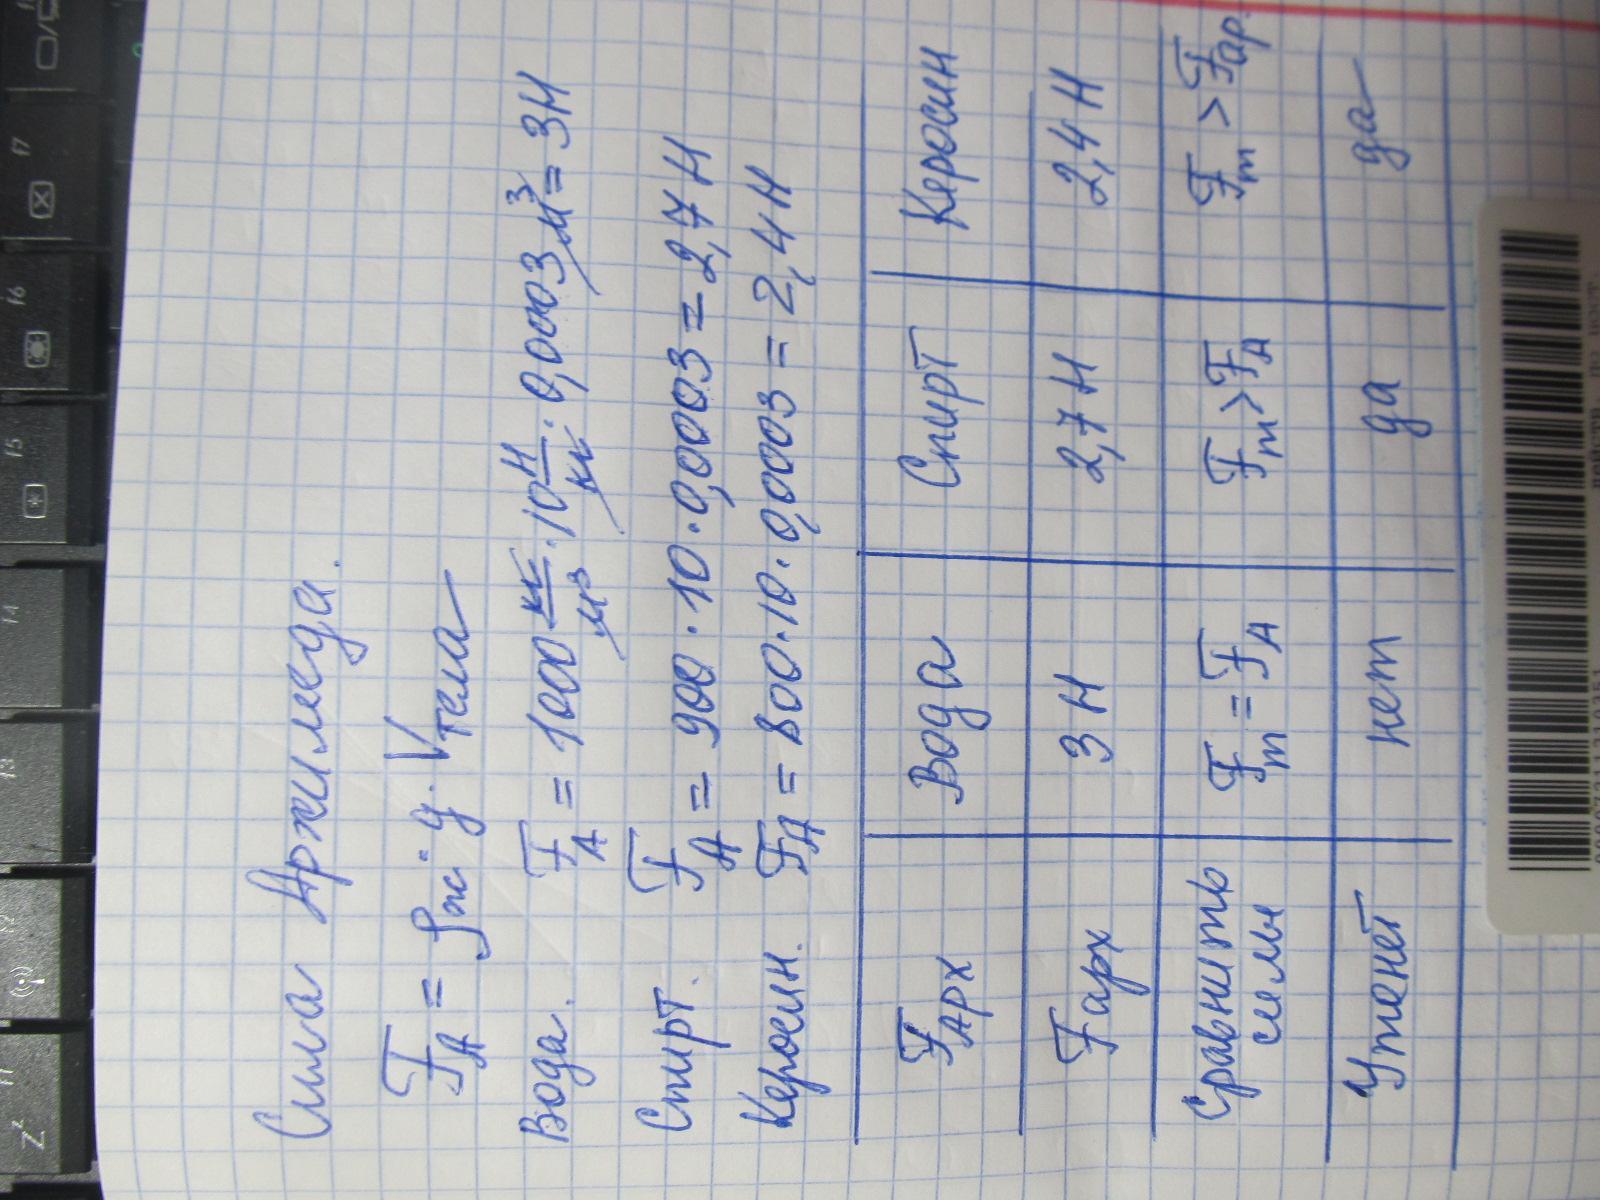 Сила Архимеда.
F_A = ρ_ж · g · V_тела
Вода. F_A = 1000 кг/м³ · 10 Н/кг · 0,0003 м³ = 3Н
Спирт. F_A = 900 · 10 · 0,0003 = 2,7Н
Керосин. F_A = 800 · 10 · 0,0003 = 2,4Н
F_АРХ Вода Спирт Керосин
F_арх 3 Н 2,7 Н 2,4 Н
Сравнить F_т = F_A F_т > F_A F_т > F_ар.
силы
Утенет нет да да
f5
f6
f7